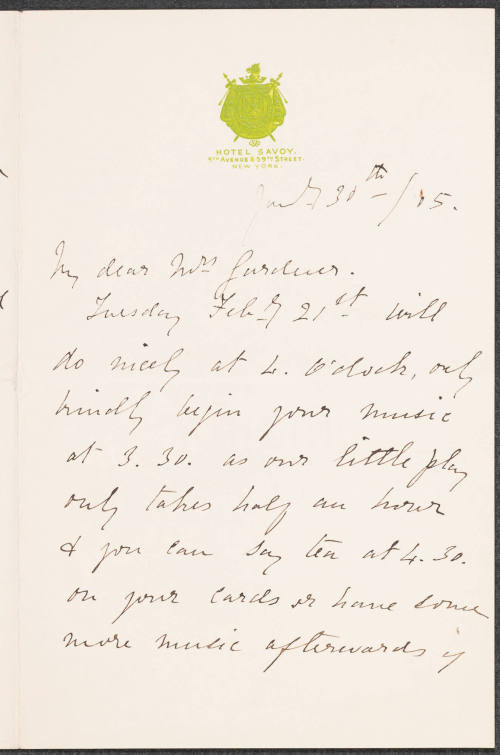 HOTEL SAVOY.
5TH AVENUE & 59TH STREET.
NEW YORK.
30th / 05.
My dear Mrs Gardner.
Tuesday Feby 21st will
do nicely at 4. o'clock, only
kindly begin your music
at 3.30. as our little play
only takes half an hour
& you can say tea at 4.30.
on your cards or have some
more music afterwards if